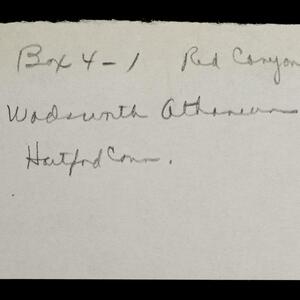 Box 4-1 Red Canyon
Wadsworth Atheneum
Hartford Conn.